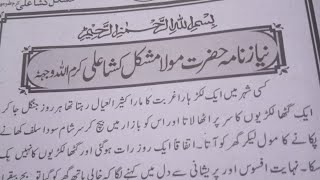 بسم اللہ الرحمن الرحیم
نیاز نامہ حضرت مولا مشکل کشا علی کرم اللہ وجہہ
کسی شہر میں ایک لکڑہارا غربت کا مارا کثیر العیال رہتا تھا ہر روز جنگل جا کر
ایک گٹھا لکڑیوں کا سر پر اٹھا لاتا اور اس کو بازار میں بیچ کر سر شام سودا سلف کھانے
پکانے کا مول لیکر گھر کو آتا۔ اتفاقا ایک روز رات ہو گئی اور گٹھا لکڑیوں کا کہیں بک
نہایت افسوس اور پریشانی سے دل میں کہنے لگا کہ خالی ہاتھ گھر کو گیا تو بچے